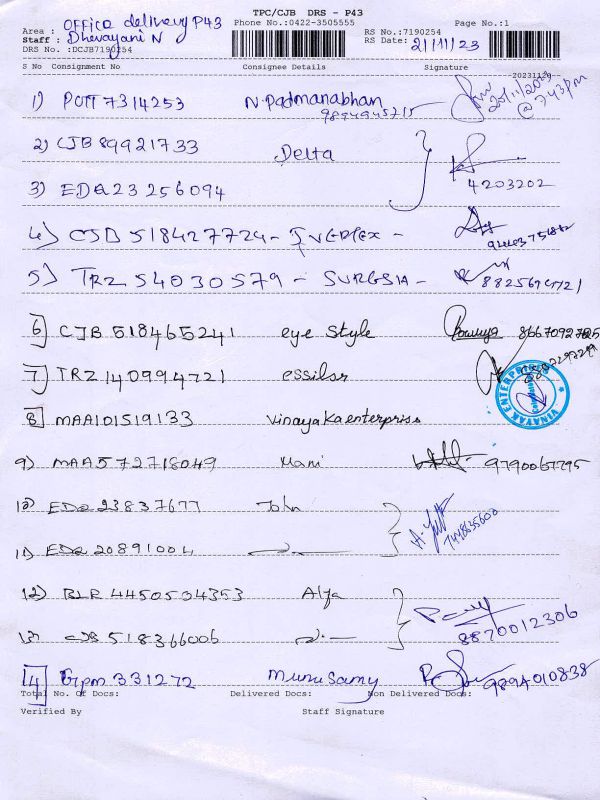 TPC/CJB DRS - P43
Area : Office delivery P43 Phone No.:0422-3505555 Page No.:1
Staff : Dhevayani N RS No.:7190254
DRS No. :DCJB7190254 RS Date: 21/11/23
S No Consignment No Consignee Details Signature
20231120
1) POTT7314253 N.Padmanabhan 20/11/2023
9894945715 @ 7.43pm
2) CJB 89921733 Delta
3) EDQ 23 256094 4203202
4) CJB 518427724 -
5) TRZ 54030579 - SURGSIA -
6 CJB 518465241 eye style 8667092725
7 TRZ 140994721 essilor
8 MAA101519133 Vinayaka enterpriss VINAYAK ENTERPRISES
9) MAA572718049 Mani 9790067795
10) EDQ 23837677 John
11) EDQ 20891004 7448635600
12) BLR 4450504353 Alfa
13) CJB 518366006 8870012306
14 331272 Munusamy 9894010838
Total No. Of Docs: Delivered Docs: Non Delivered Docs:
Verified By Staff Signature